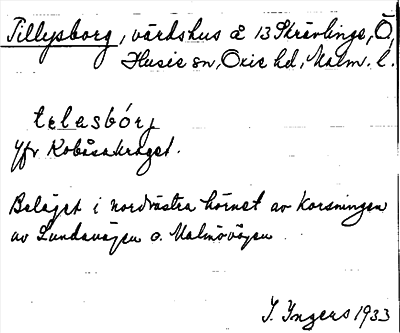 Tillysborg, värdshus å 13 Skrävlinge, Ö,
Husie sn, Oxie hd, Malm. l.
telasbórj
Jfr Kobåsakraget.
Beläget i nordvästra hörnet av korsningen
av Lundavägen o. Malmövägen
I. Ingers 1933